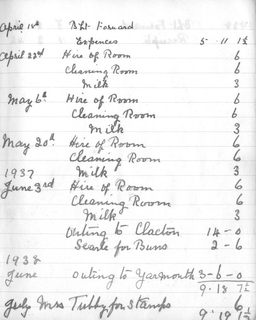 April 14th Bht Forward
Expences 5 11 1½
April 22nd Hire of Room 6
Cleaning Room 6
Milk 3
May 6th Hire of Room 6
Cleaning Room 6
Milk 3
May 20th Hire of Room 6
Cleaning Room 6
1937 Milk 3
June 3rd Hire of Room 6
Cleaning Room 6
Milk 3
Outing to Clacton 14 - 0
Searle for Buns 2 - 6
1938
June Outing to Yarmouth 3 - 6 - 0
9 - 18 7½
July Mrs Tibby for Stamps 6
9 . 19 1½